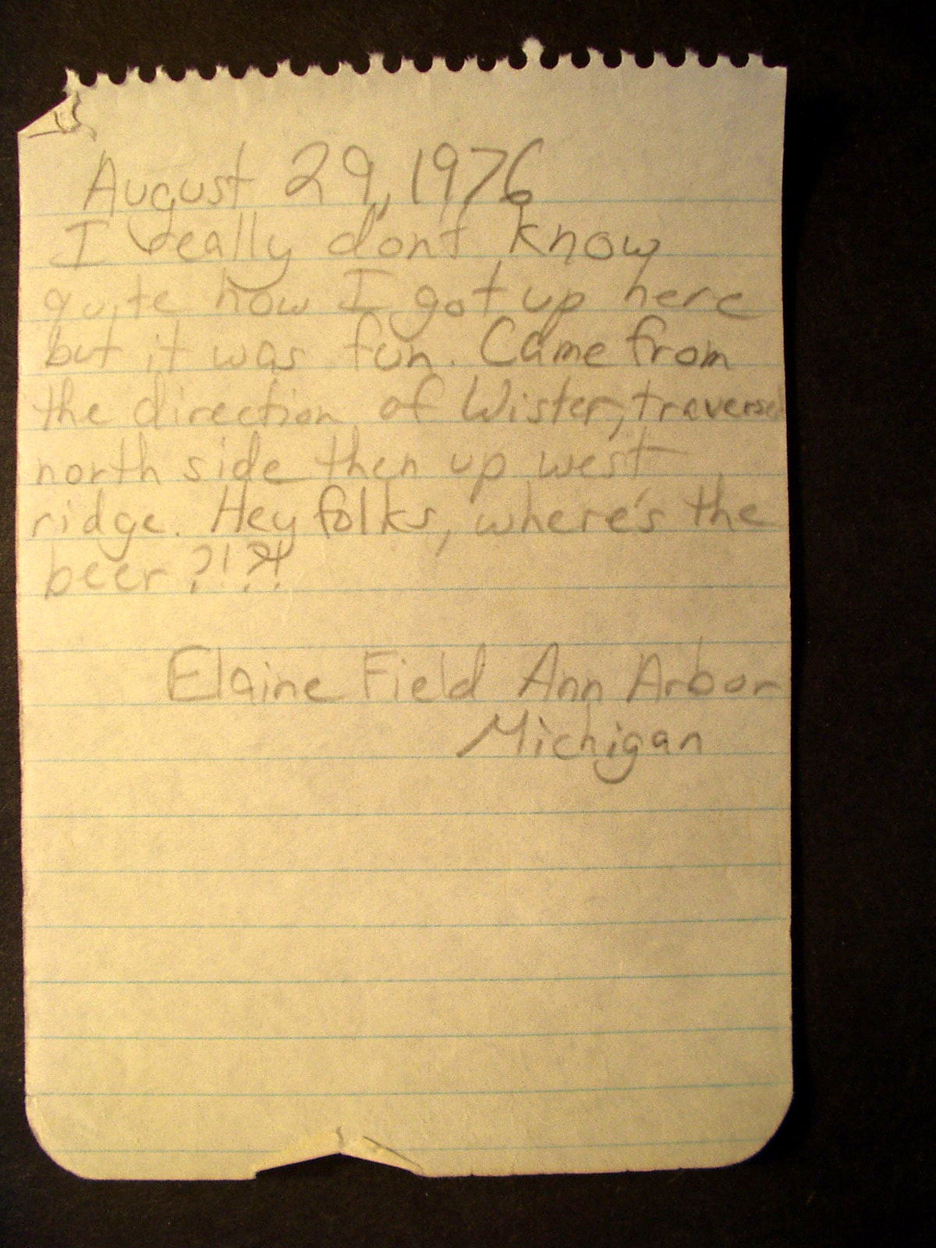 August 29, 1976
I really dont know
quite how I got up here
but it was fun. Came from
the direction of Wister, traversed
north side then up west
ridge. Hey folks, where's the
beer ?!?!
Elaine Field Ann Arbor
Michigan